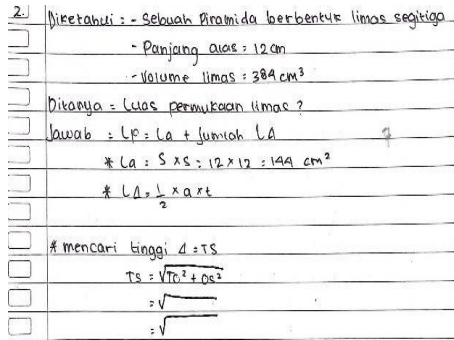 2. Diketahui : - Sebuah Piramida berbentuk limas segitiga
- Panjang alas = 12 cm
- Volume limas = 384 cm³
Ditanya = Luas permukaan limas ?
Jawab : Lp = La + Jumlah LΔ
* La : S x S : 12 x 12 : 144 cm²
* LΔ = 1/2 x a x t
* mencari tinggi Δ = TS
TS = √TO² + OS²
= √
= √